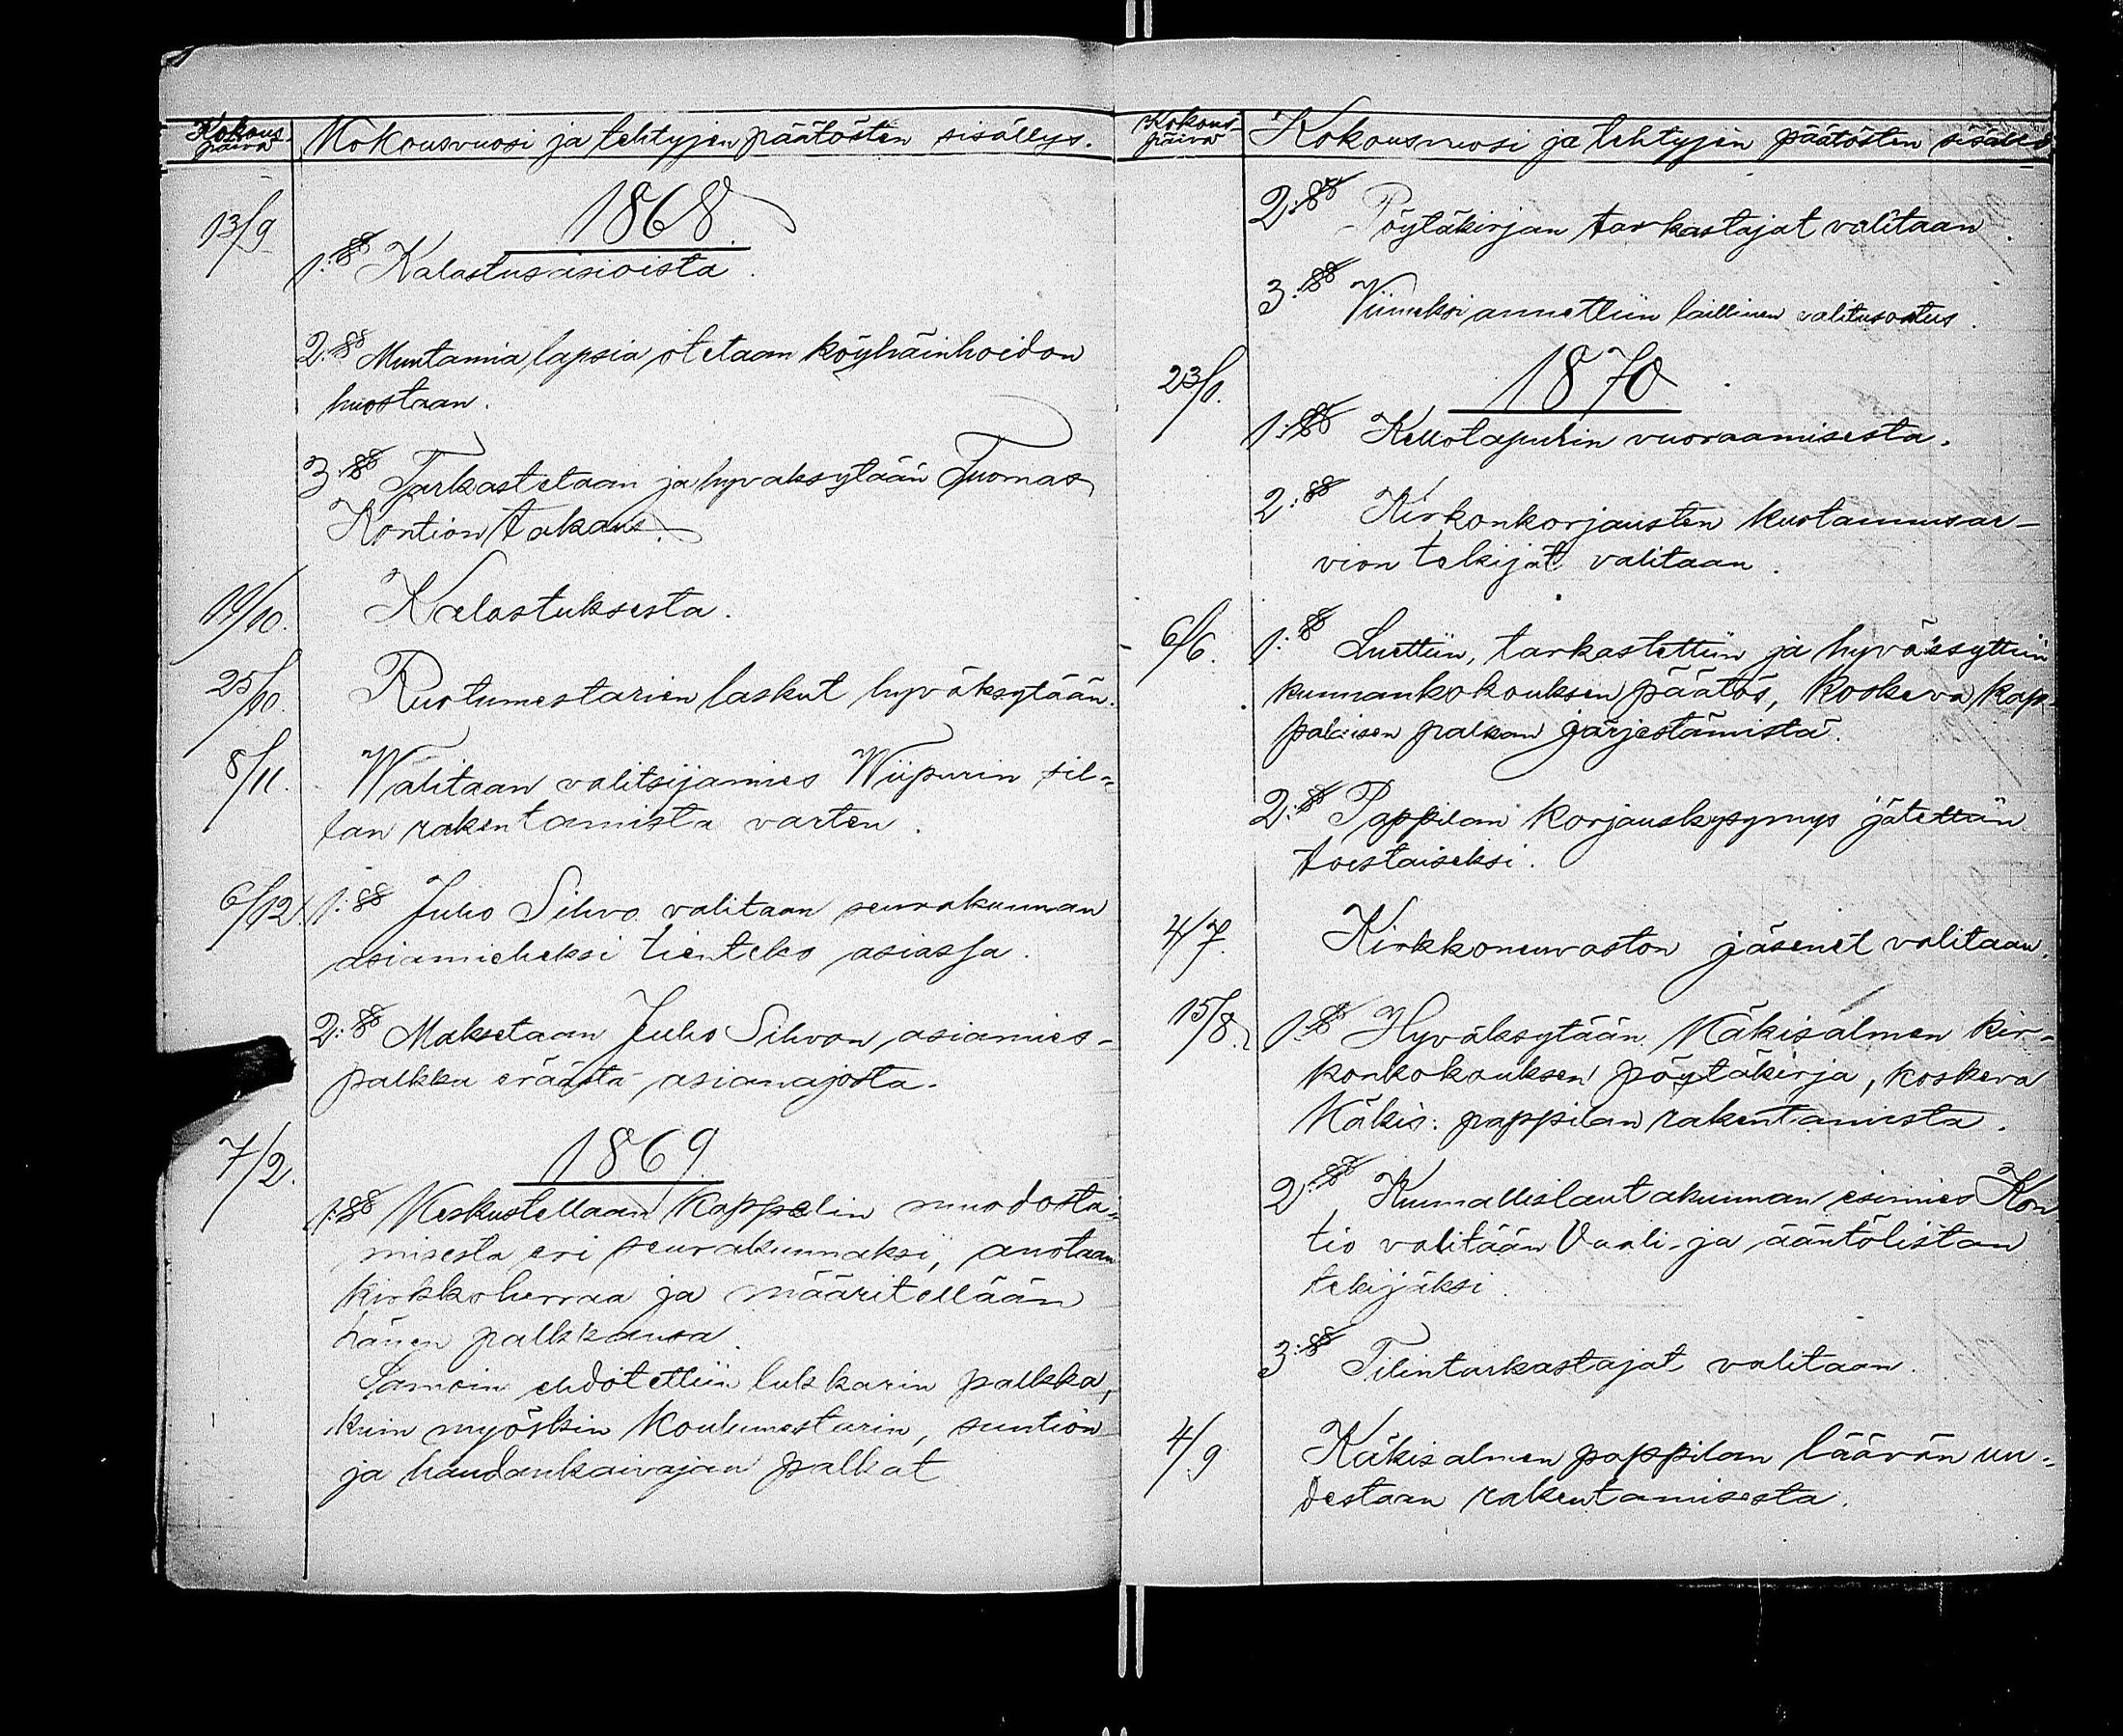 Kokous-
päivä
Kokousvuosi ja tehtyjen päätösten sisällys.
13/9
1868
1:§§ Kalastusasioista.
2:§§ Muutamia lapsia otetaan köyhäinhoidon
huostaan.
3:§§ Tarkastetaan ja hyvaksytään Tuomas
Kontion takaus.
/10. Kalastuksesta.
25/10. Ruotumestarien laskut hyväksytään.
8/11. Walitaan valitsijamies Wiipurin sil-
lan rakentamista varten.
6/12. 1:§§ Juho Sihvo valitaan seurakunnan
asiamieheksi tienteko asiassa.
2:§§ Maksetaan Juho Sihvon asiamies-
palkka eräästä asianajosta.
1869
7/2.
1:§§ Keskustellaan Kappelin muodosta-
misesta eri seurakunnaksi, anotaan
kirkkoherraa ja määritellään
hänen palkkansa.
Samoin ehdotettiin lukkarin palkka,
kuin myöskin koulumestarin, suntion
ja haudankaivajan palkat
Kokous-
päivä
Kokousvuosi ja tehtyjen päätösten sisällys
2:§§ Pöytäkirjan tarkastajat valitaan.
3:§§ Viimeksi annettiin laillinen valitusosotus.
23/1.
1870
1:§§ Kellotapulin vuoraamisesta.
2:§§ Kirkonkorjausten kustannusar-
vion tekijät valitaan.
6/6. 1:§§ Luettiin, tarkastettiin ja hyväksyttiin
kunnankokouksen päätös, koskeva kap-
palaisen palkan järjestämistä.
2:§§ Pappilan korjauskysymys jätettän
toistaiseksi.
4/7. Kirkkoneuvoston jäsenet valitaan.
15/8. 1:§§ Hyväksytään Käkisalmen kir-
konkokouksen pöytäkirja, koskeva
Käkis: pappilan rakentamista.
2:§§ Kunnallislautakunnan esimies Kon
tio valitään Vaali- ja ääntölistan
tekijäksi.
3:§§ Tilintarkastajat valitaan.
4/9 Käkisalmen pappilan läävän uu-
destaan rakentamisesta.